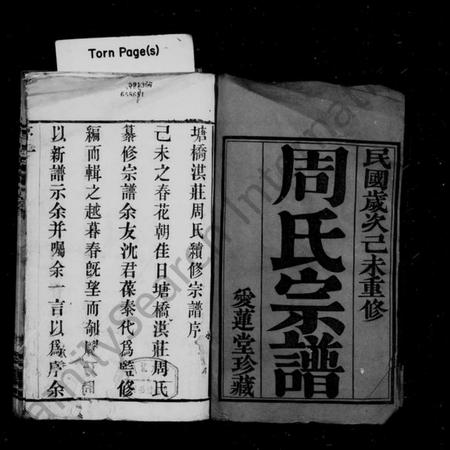 Torn Page(s)
民國歲次己未重修
周氏宗譜
愛蓮堂珍藏
塘橋淇莊周氏續修宗譜序
己未之春花朝佳日塘橋淇莊周氏
纂修宗譜余友沈君葆泰代爲監修
編而輯之越暮春旣望而刱
以新譜示余并囑余一言以爲序余